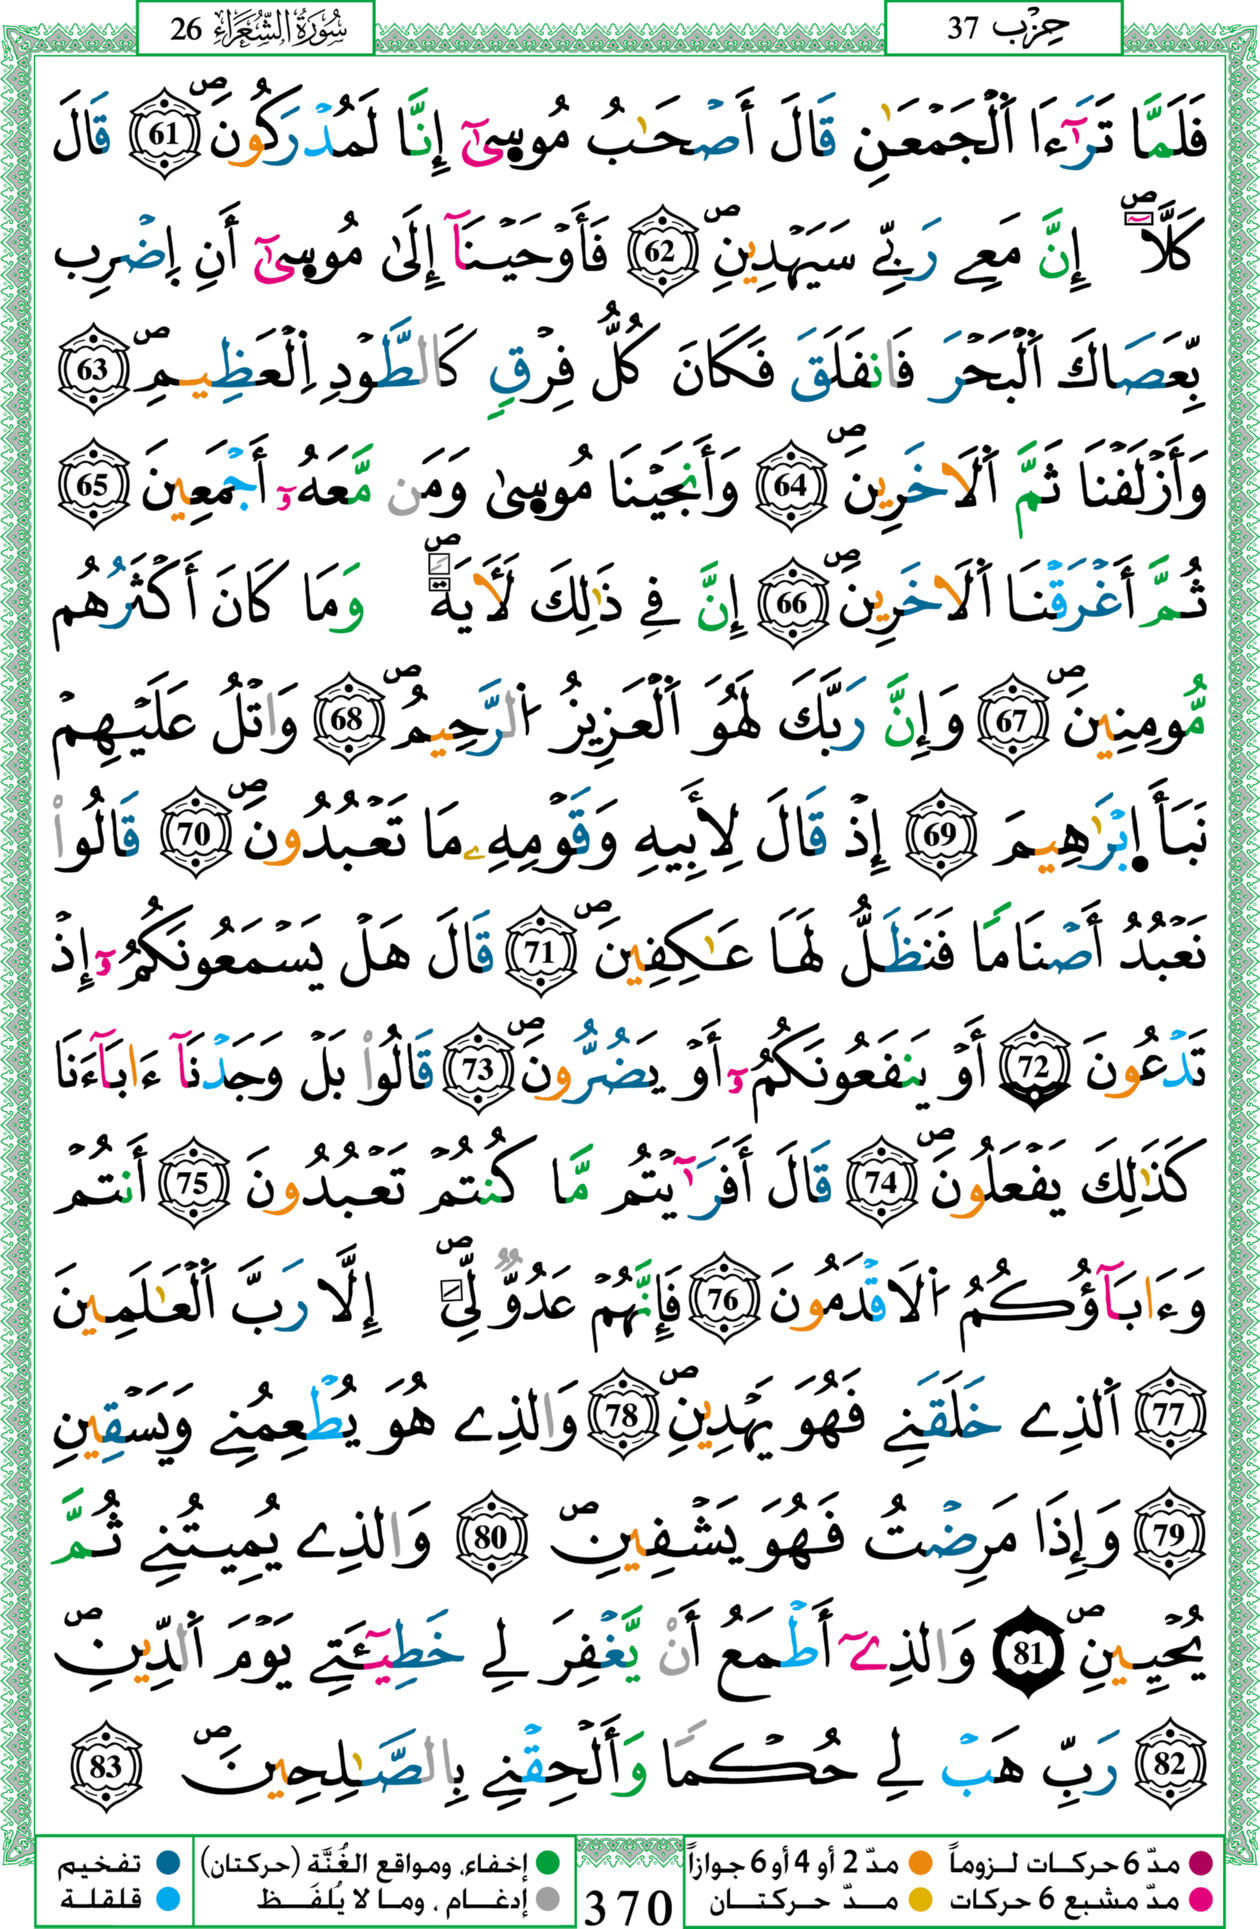 سُورَةُ الشُّعَرَاء 26
حِزْب 37
فَلَمَّا تَرَٰٓءَا اَ۬لْجَمْعَٰنِ قَالَ أَصْحَٰبُ مُوس۪ىٰٓ إِنَّا لَمُدْرَكُونَۖ 61 قَالَ
كَلَّآۖ إِنَّ مَعِے رَبِّے سَيَهْدِينِۖ 62 فَأَوْحَيْنَآ إِلَىٰ مُوس۪ىٰٓ أَنِ اِ۪ضْرِب
بِّعَصَاكَ اَ۬لْبَحْرَ فَانفَلَقَ فَكَانَ كُلُّ فِرْقٖ كَالطَّوْدِ اِ۬لْعَظِيمِۖ 63
وَأَزْلَفْنَا ثَمَّ اَ۬لَاخَرِينَۖ 64 وَأَنجَيْنَا مُوس۪ىٰ وَمَن مَّعَهُۥٓ أَجْمَعِينَ 65
ثُمَّ أَغْرَقْنَا اَ۬لَاخَرِينَۖ 66 إِنَّ فِے ذَٰلِكَ لَأٓيَةٗۖ وَمَا كَانَ أَكْثَرُهُم
مُّومِنِينَۖ 67 وَإِنَّ رَبَّكَ لَهُوَ اَ۬لْعَزِيزُ اُ۬لرَّحِيمُۖ 68 وَاتْلُ عَلَيْهِمْ
نَبَأَ اِ۪بْرَٰهِيمَ 69 إِذْ قَالَ لِأَبِيهِ وَقَوْمِهِۦ مَا تَعْبُدُونَۖ 70 قَالُواْ
نَعْبُدُ أَصْنَاماٗ فَنَظَلُّ لَهَا عَٰكِفِينَۖ 71 قَالَ هَلْ يَسْمَعُونَكُمُۥٓ إِذْ
تَدْعُونَ 72 أَوْ يَنفَعُونَكُمُۥٓ أَوْ يَضُرُّونَۖ 73 قَالُواْ بَلْ وَجَدْنَآ ءَابَآءَنَا
كَذَٰلِكَ يَفْعَلُونَۖ 74 قَالَ أَفَرَٰٓيْتُم مَّا كُنتُمْ تَعْبُدُونَ 75 أَنتُمْ
وَءَابَآؤُكُمُ اُ۬لَاقْدَمُونَ 76 فَإِنَّهُمْ عَدُوّٞ لِّيَۖ إِلَّا رَبَّ اَ۬لْعَٰلَمِينَ
77 اَ۬لذِے خَلَقَنِے فَهُوَ يَهْدِينِۖ 78 وَالذِے هُوَ يُطْعِمُنِے وَيَسْقِينِ
79 وَإِذَا مَرِضْتُ فَهُوَ يَشْفِينِۖ 80 وَالذِے يُمِيتُنِے ثُمَّ
يُحْيِينِۖ 81 وَالذِےٓ أَطْمَعُ أَنْ يَّغْفِرَ لِے خَطِيٓـَٔتِے يَوْمَ اَ۬لدِّينِۖ
82 رَبِّ هَبْ لِے حُكْماٗ وَأَلْحِقْنِے بِالصَّٰلِحِينَۖ 83
مدّ 6 حركات لـزوماً
مدّ 2 أو 4 أو 6 جوازاً
مدّ مشبع 6 حركات
مــدّ حركتــان
370
إخفاء، ومواقع الغُنَّة (حركتان)
إدغـام ، ومـا لا يُلفَـظ
تفخيم
قلقلة